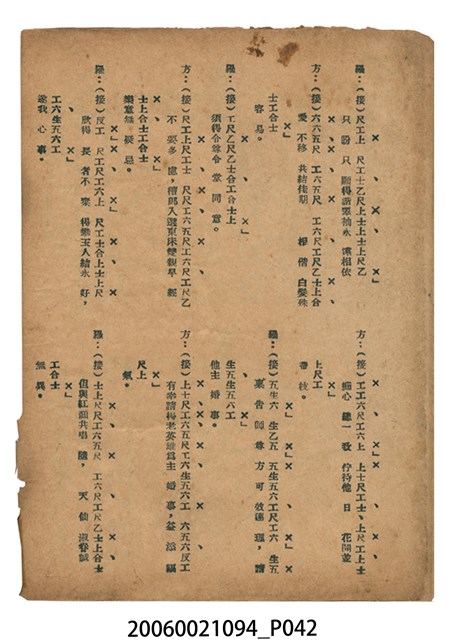 羅：（接）尺工上 尺工士乙尺上士上士上乙尺
只盼只願得諧翠袖永常相依
方：（接）六六五尺 工六五尺 工六尺工尺乙士上合
愛不移 共結佳期 相偕 白髮
士工合士
容易。
羅：（接）工尺乙尺乙士合工合士上
須得令尊令堂同意。
方：（接）尺工上尺工上 尺工尺工六工六尺工尺乙
不要多慮，郎入選東床雙親早經
士上合士工合士
樂意無疑忌。
羅：（接）反工 尺工尺工六上 尺工合士上士上尺
欣得 長者不棄 得樂玉人結永好，
工六生五六工
遂我心事。
方：（接）工工六尺工六上 上士尺工士上尺工上尺
細心 建一 佇待他日 花開並
上尺工
蒂枝。
羅：（接）五生六 生乙五 五生五六工尺工六 生五
稟告師尊 方可效連理，請
生五生五六工
他主婚事。
方：（接）上士尺尺工六五尺工六生五六工 六五六反工
有幸請得老英雄為主 婚事，添
尺上
氣。
羅：（接）士上尺尺工六五尺 工六尺工尺乙士上合士
但與紅顏共唱隨， 天仙
工合士
無異。
20060021094_P042